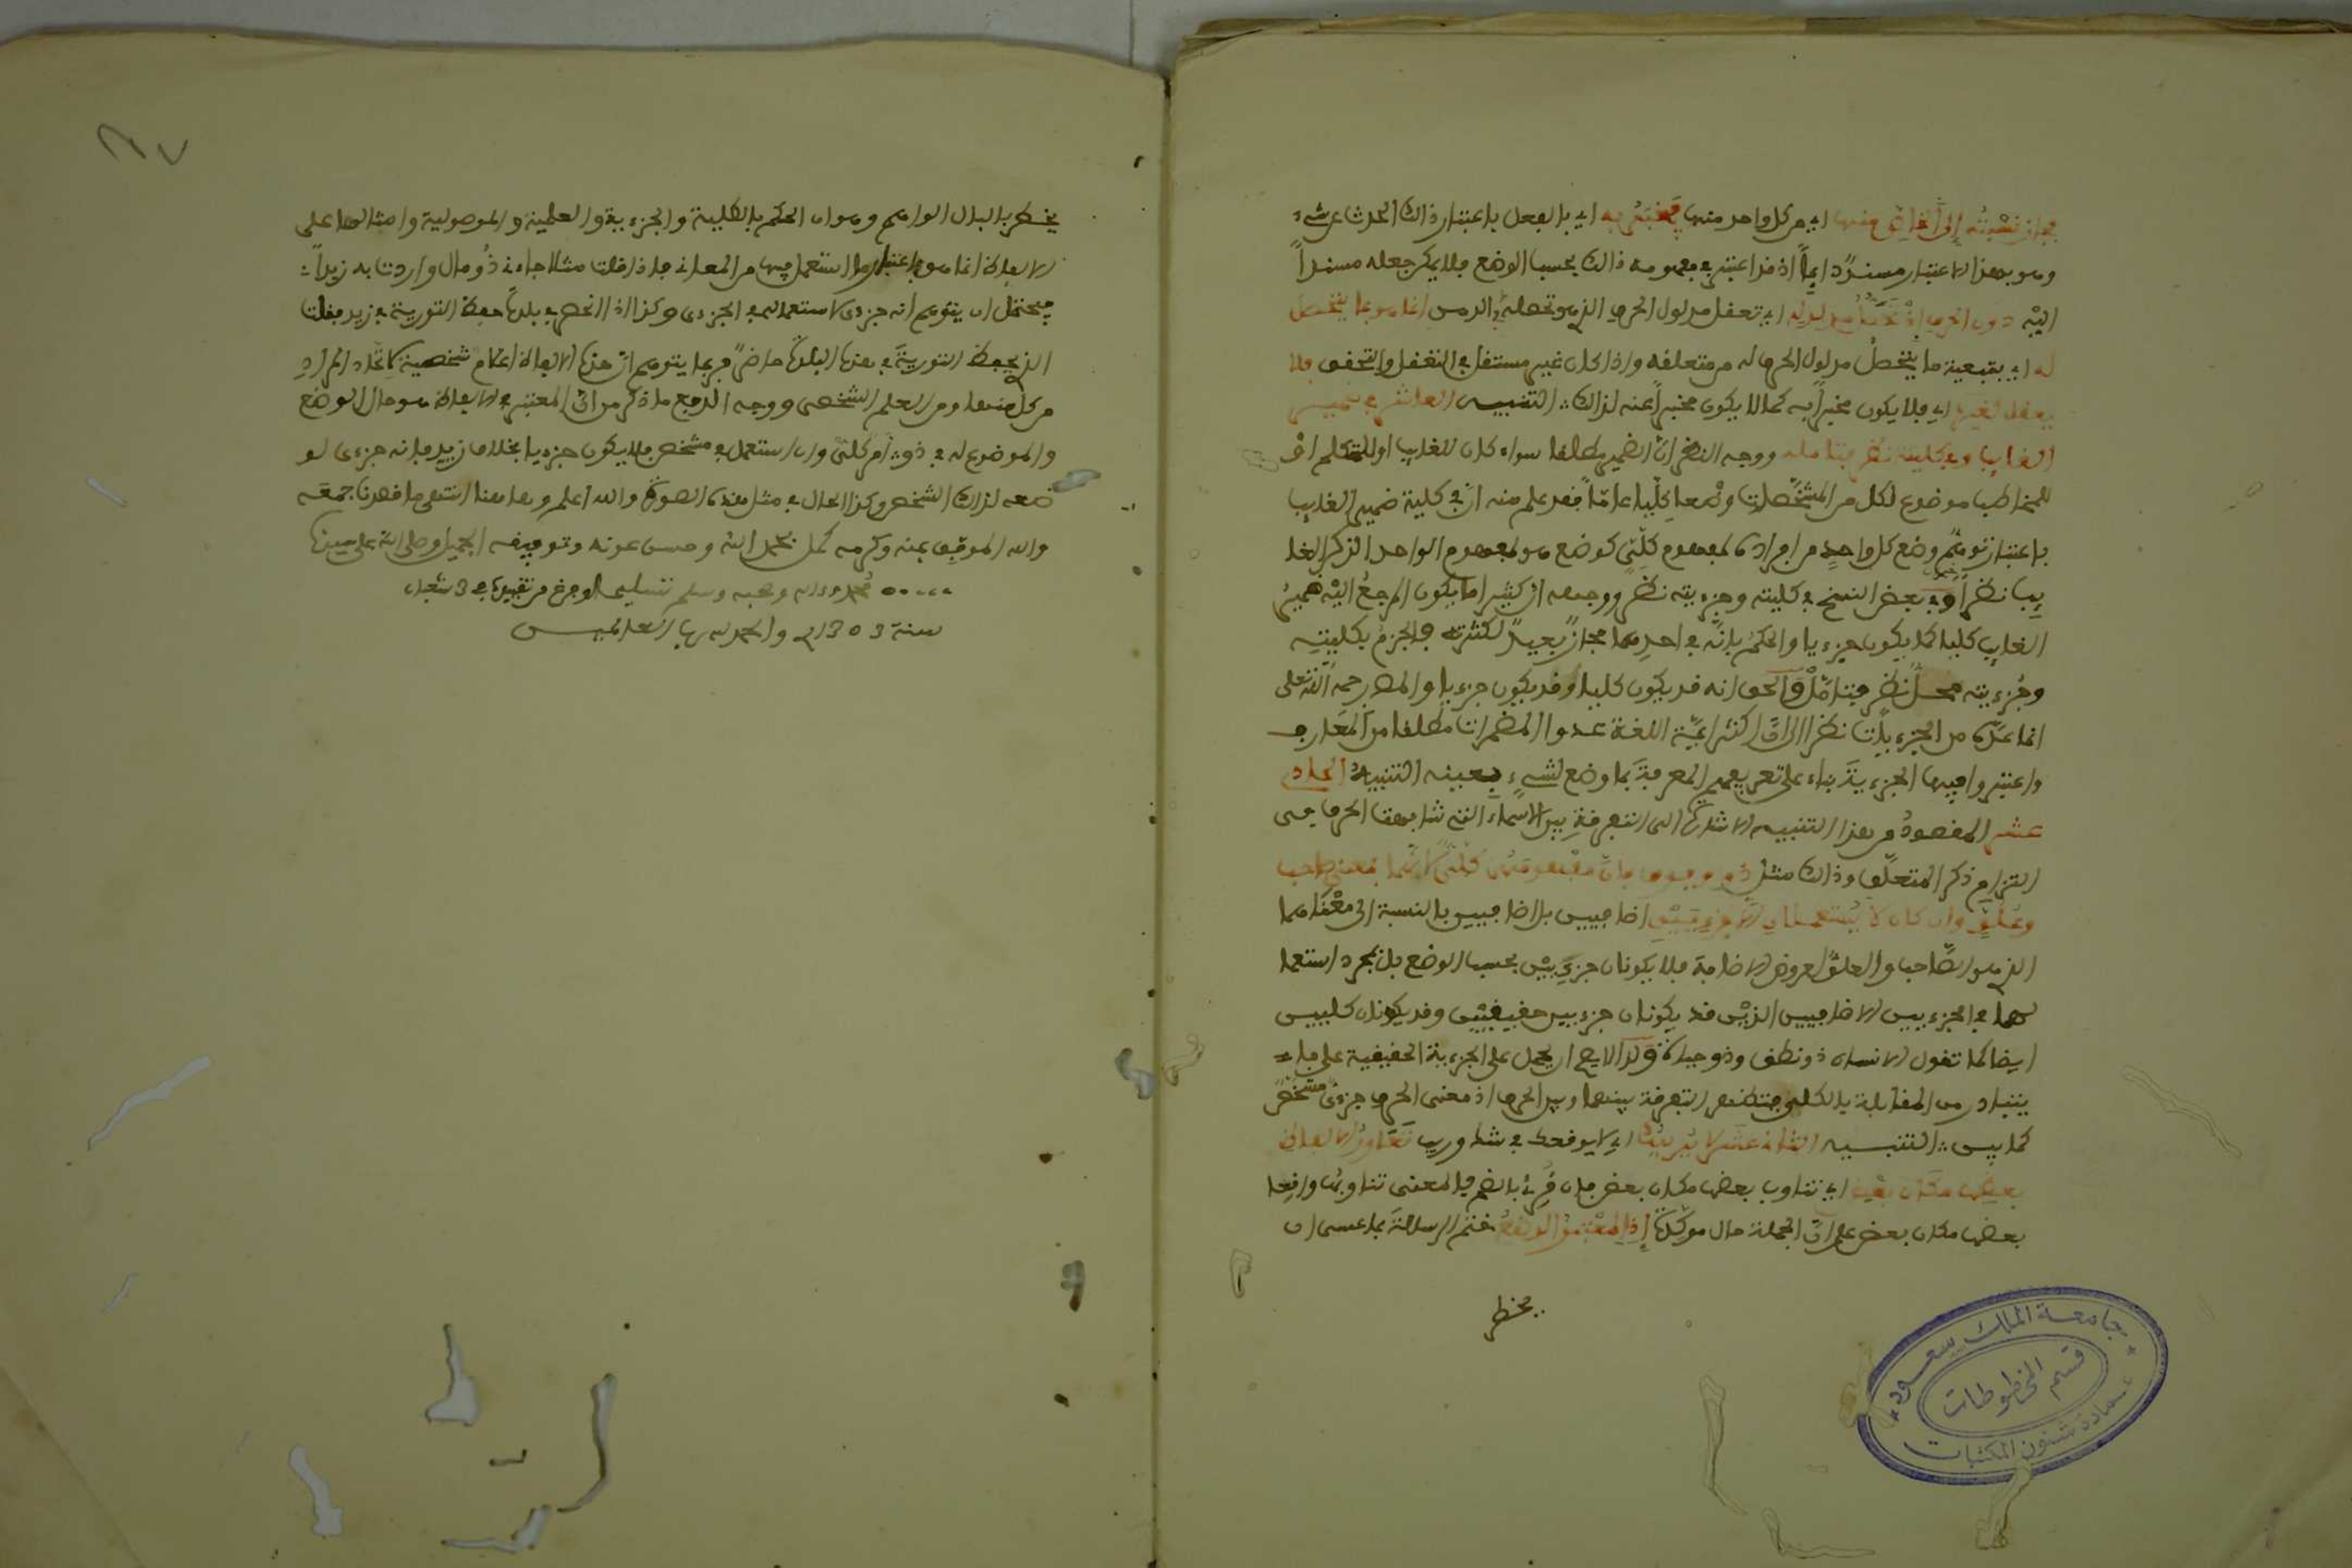 فجاز نسبته إلى الخاص منهما اي من كل واحد منهما فيخبر به اي بالفعل باعتبار ذالك الحدث عن شيء
وهو بهذا الاعتبار مسندا دايما اذ قد اعتبر في مفهومه ذالك بحسب الوضع فلا يمكن جعله مسندا
اليه دون الحرف إذ تحصل مدلوله اي تعقل مدلول الحرف الذي هو تحصله في الذهن انما هو بما يتحصل
له اي بتبعية ما يتحصل مدلول الحرف له من متعلقه واذا كان غير مستقل في التعقل والتحقق فلا
يعقل لغيره اي فلا يكون مخبرا به كما لا يكون مخبرا عنه لذالك التنبيه العاشر في ضمير
الغايب وفي كليته نظر فتامله ووجه النظر ان الضمير مطلقا سواء كان للغايب او للمتكلم او
للمخاطب موضوع لكل من المشخصات وضعا كليا عاما فقد علم منه ان في كلية ضمير الغايب
باعتبار توهم وضع كل واحد من افراده لمفهوم كلي كوضع هو لمفهوم الواحد المذكر الغا
يب نظرا وفي بعض النسخ في كليته وجزءيته نظر ووجهه ان كثيرا ما يكون المرجع اليه ضمير
الغايب كليا كما يكون جزءيا والحكم بانه في احدهما مجاز بعيد لكثرته فالجزم بكليته
وجزءيته محل نظر فتامل والحق انه قد يكون كليا وقد يكون جزءيا والمص رحمه الله تعلى
انما عده من الجزءيات نظرا الى ان اكثر ايمة اللغة عدوا المضمرات مطلقا من المعارف
واعتبروا فيها الجزءية بناء على تعريفهم المعرفة بما وضع لشيء بعينه التنبيه الحادي
عشر المقصود من هذا التنبيه الاشارة الى التفرقة بين الاسماء التي شابهت الحرف في
التزام ذكر المتعلق وذالك مثل ذو وفوق فان مفهومهما كلي لانهما بمعنى صاحب
وعلو وان كان لا يستعملان الا جزءيين اضافيين بالاضافيين بالنسبة الى معناهما
الذي هو الصاحب والعلو لعروض الاضافة فلا يكونان جزءيين بحسب الوضع بل بمجرد استعما
لهما في الجزءيين الاضافيين الذين قد يكونان جزءيين حقيقيين وقد يكونان كليين
ايضا كما تقول الانسان ذو نطق وذو حياة ولذا لا يصح ان يحمل على الجزءية الحقيقية على ما
يتبادر من المقابلة بالكلي فتظهر التفرقة بينهما وبين الحرف اذ معنى الحرف جزءي مشخص
كما بين التنبيه الثاني عشر لا يريبك اي لا يوقعك في شك وريب تعاور الالفاظ
بعضها مكان بعض اي تناوب بعضها مكان بعض فان قرئ بالضم فالمعنى تناوبها واقعا
بعضها مكان بعض على ان الجملة حال موكدة إذ المعتبر الوضع ختم الرسالة بما عسى ان
يخطر
جامعة الملك سعود
قسم المخطوطات
عمادة شئون المكتبات
يخطر بالبال الواهم وهو ان الحكم بالكلية والجزءية والعلمية والموصولية وامثالها على
الالفاظ انما هو باعتبار ما استعمل فيها من المعاني فاذا قلت مثلا جاءني ذو مال واردت به زيدا
فيحتمل ان يتوهم انه جزءي لاستعماله في الجزءي وكذا اذا انحصر في بلدة حفظ التورية في زيد فقلت
الذي يحفظ التورية في هذه البلدة حاضر فربما يتوهم ان هذه الالفاظ اعلام شخصية لاتحاد المراد
من كل منها ومن العلم الشخصي ووجه الدفع ما ذكر من ان المعتبر في الالفاظ هو حال الوضع
والموضوع له في ذو امر كلي وان استعمل في مشخص فلا يكون جزءيا بخلاف زيد فانه جزءي لو
ضعه لذالك الشخص وكذا الحال في مثل هذه الصورة والله اعلم وهاهنا انتهى ما قصدنا جمعه
والله الموفق بمنه وكرمه كمل بحمد الله وحسن عونه وتوفيقه الجميل وصلى الله على سيدنا
محمد وءاله وصحبه وسلم تسليما وفرغ من تقييده في 3 شعبان
سنة 1303 والحمد لله رب العالمين